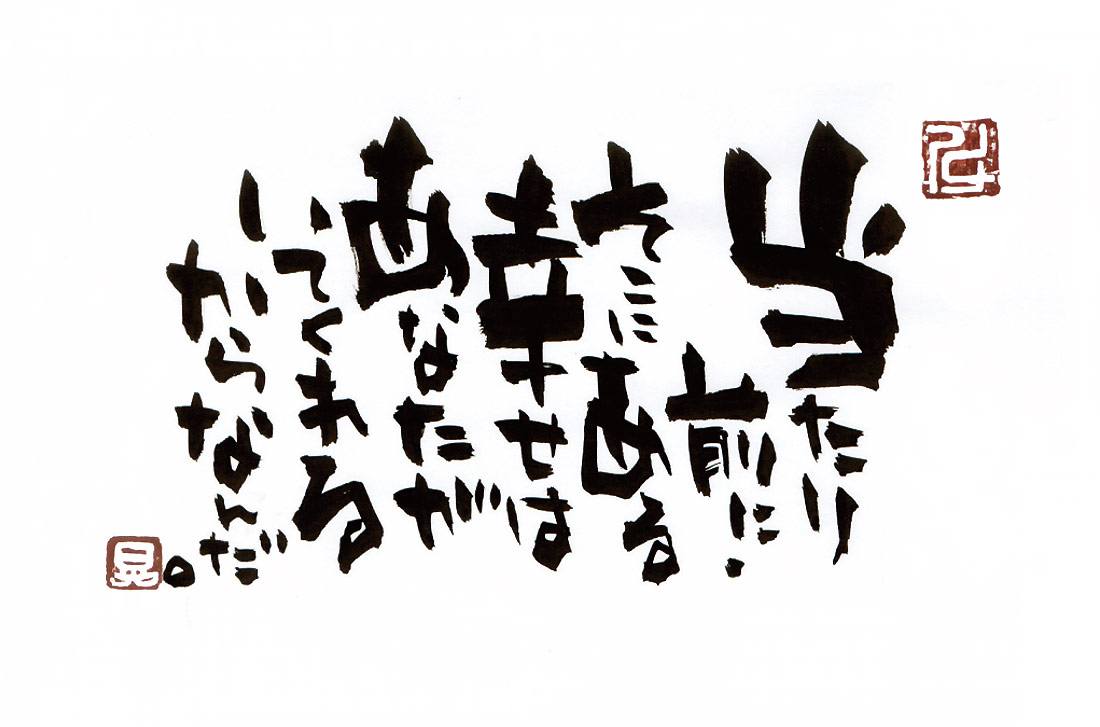 当たり
前に、
そこにある
幸せは
あなたが
いてくれる
からなんだ。
晃